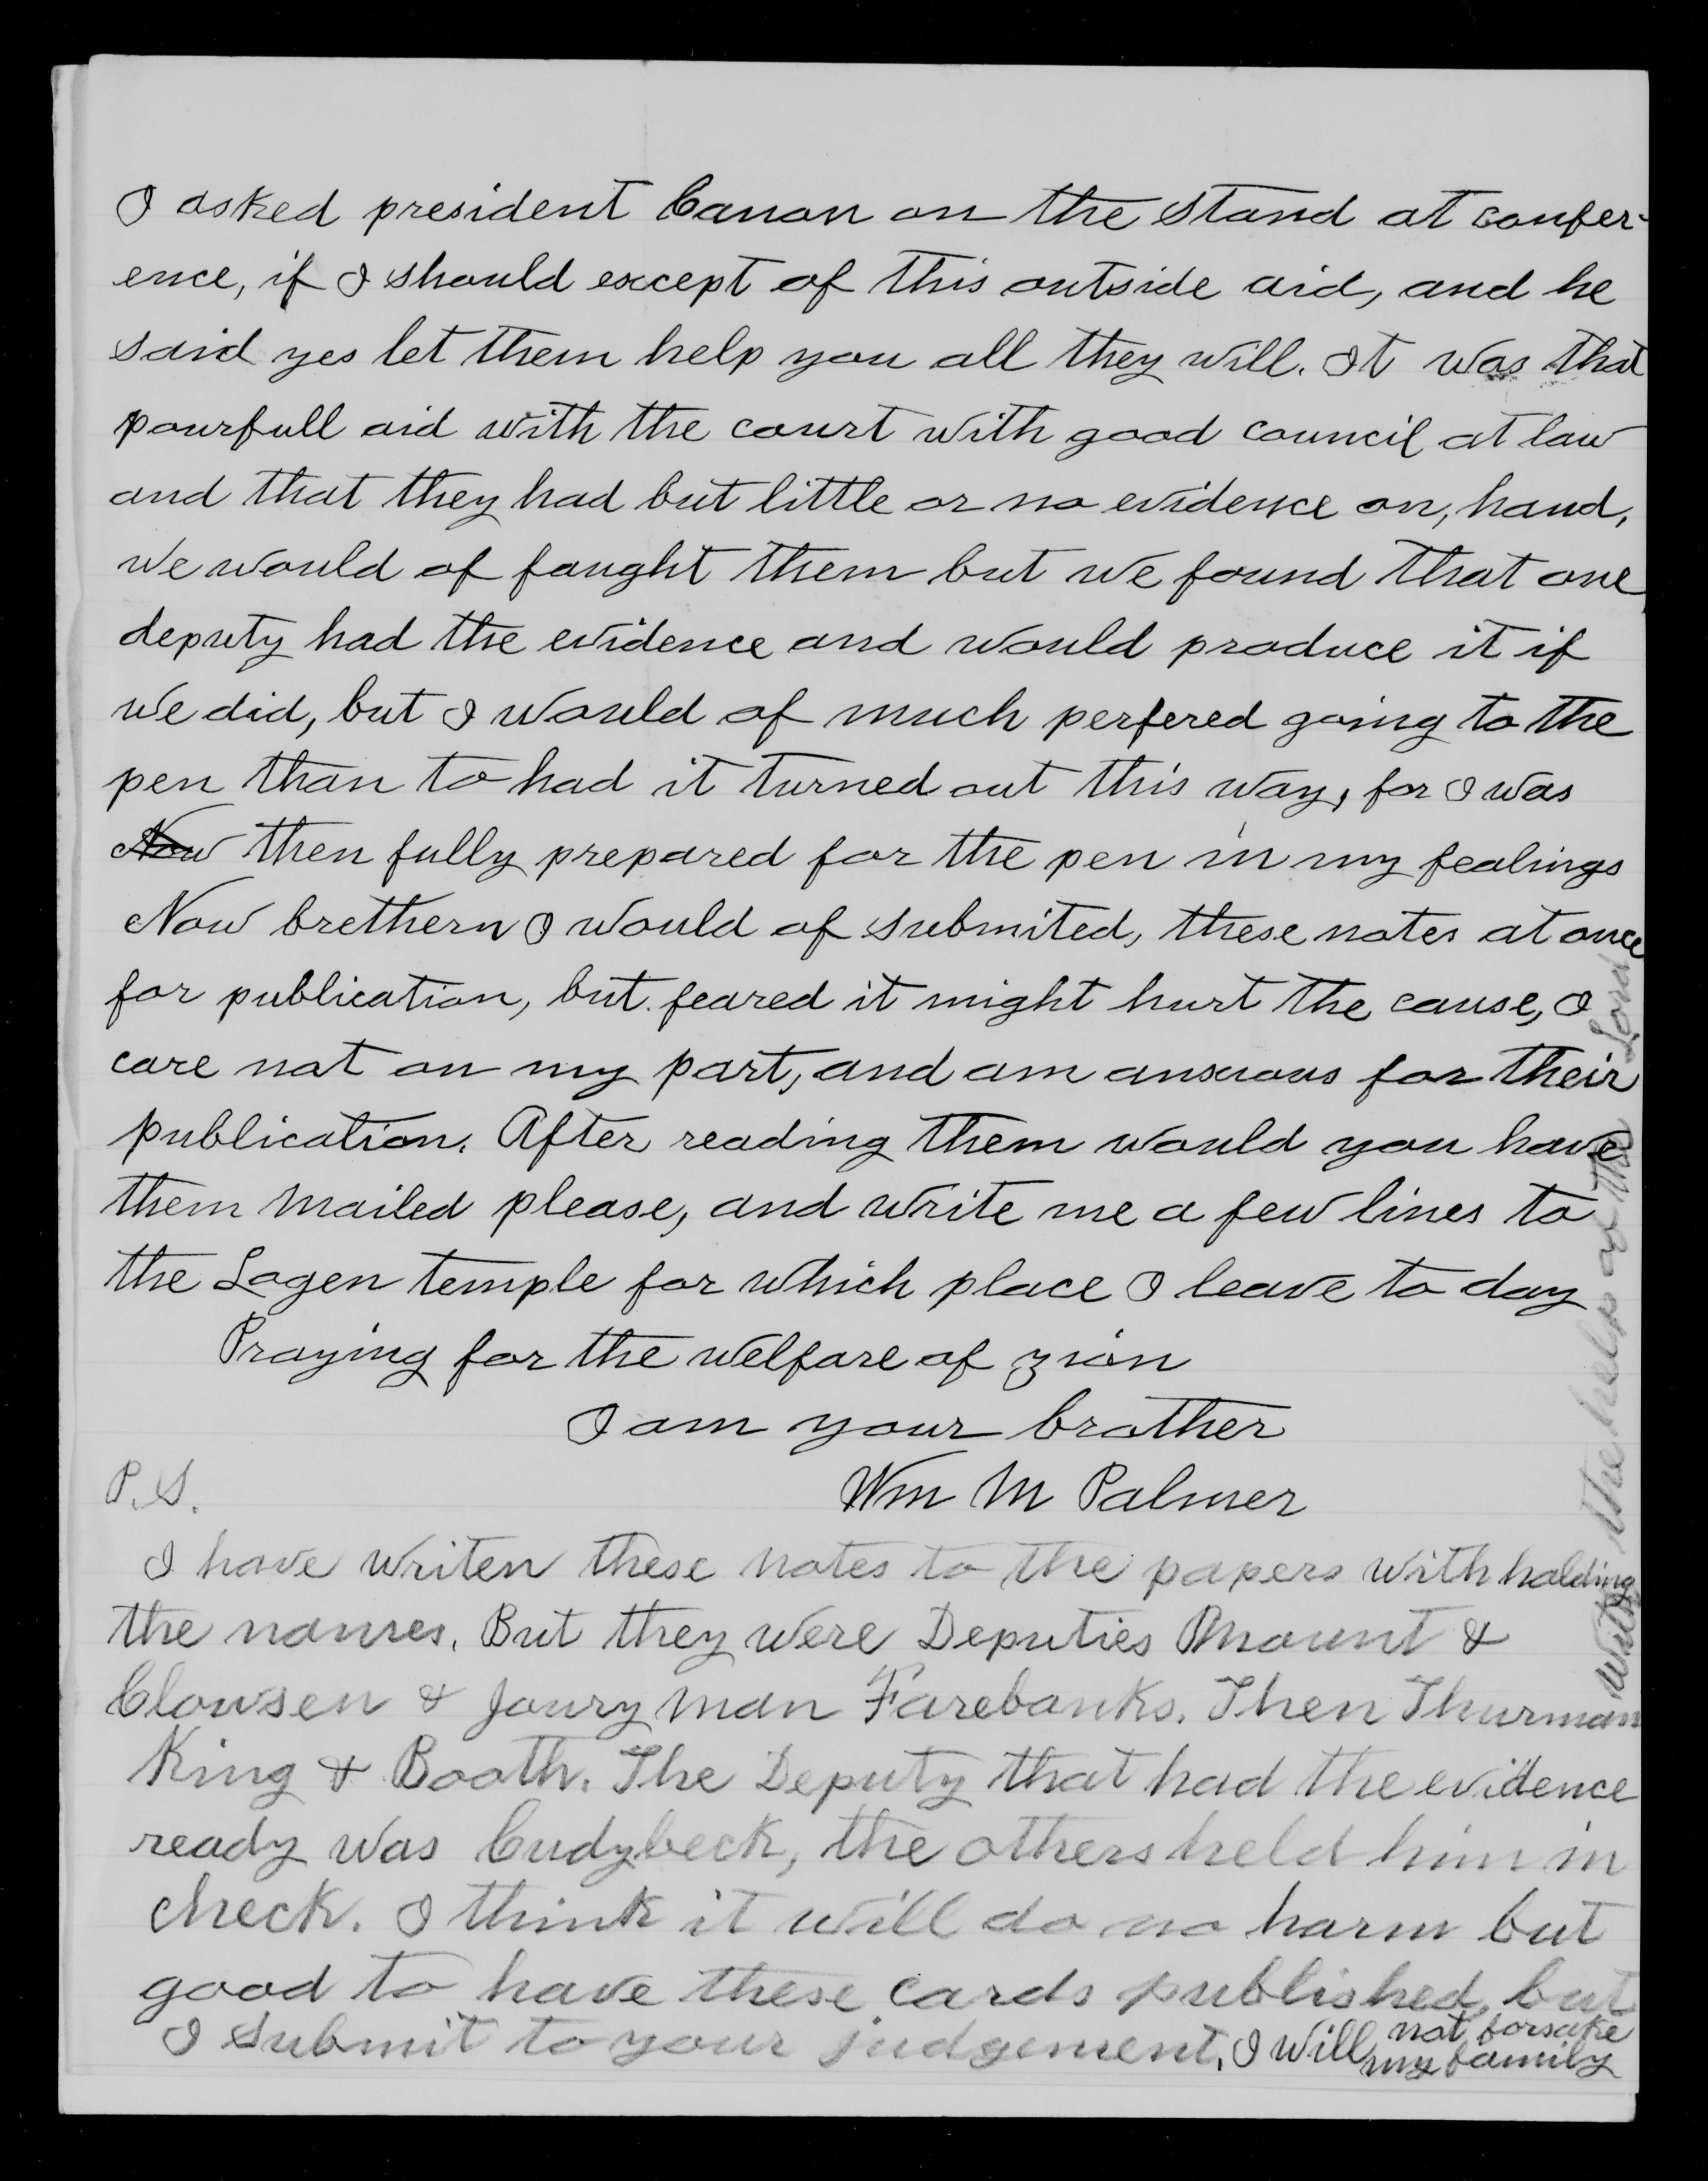 I asked president Canon on the stand at confer-
ence, if I should except of this outside aid, and he
said yes let them help you all they will. It was that
pourfull aid with the court with good council at law
and that they had but little or no evidence on, hand,
we would of faught them but we found that one
deputy had the evidence and would produce it if
we did, but I would of much perfered going to the
pen than to had it turned out this way, for I was
Now then fully prepared for the pen in my fealings
Now brethern I would of submited, these notes at once
for publication, but feared it might hurt the cause, I
care not on my part, and am anxious for their
publication. After reading them would you have
them mailed please, and write me a few lines to
the Logen temple for which place I leave to day
Praying for the welfare of zion
I am your brother
Wm M Palmer
P.S.
I have writen these notes to the papers with holding
the names. But they were Deputies Mount &
Clowsen & Joury man Farebanks. Then Thurman
King & Booth. The Deputy that had the evidence
ready was Cudybeck, the others held him in
check. I think it will do no harm but
good to have these cards published, but
I submit to your judgement, I will not forsake
my family
with the help of the Lord